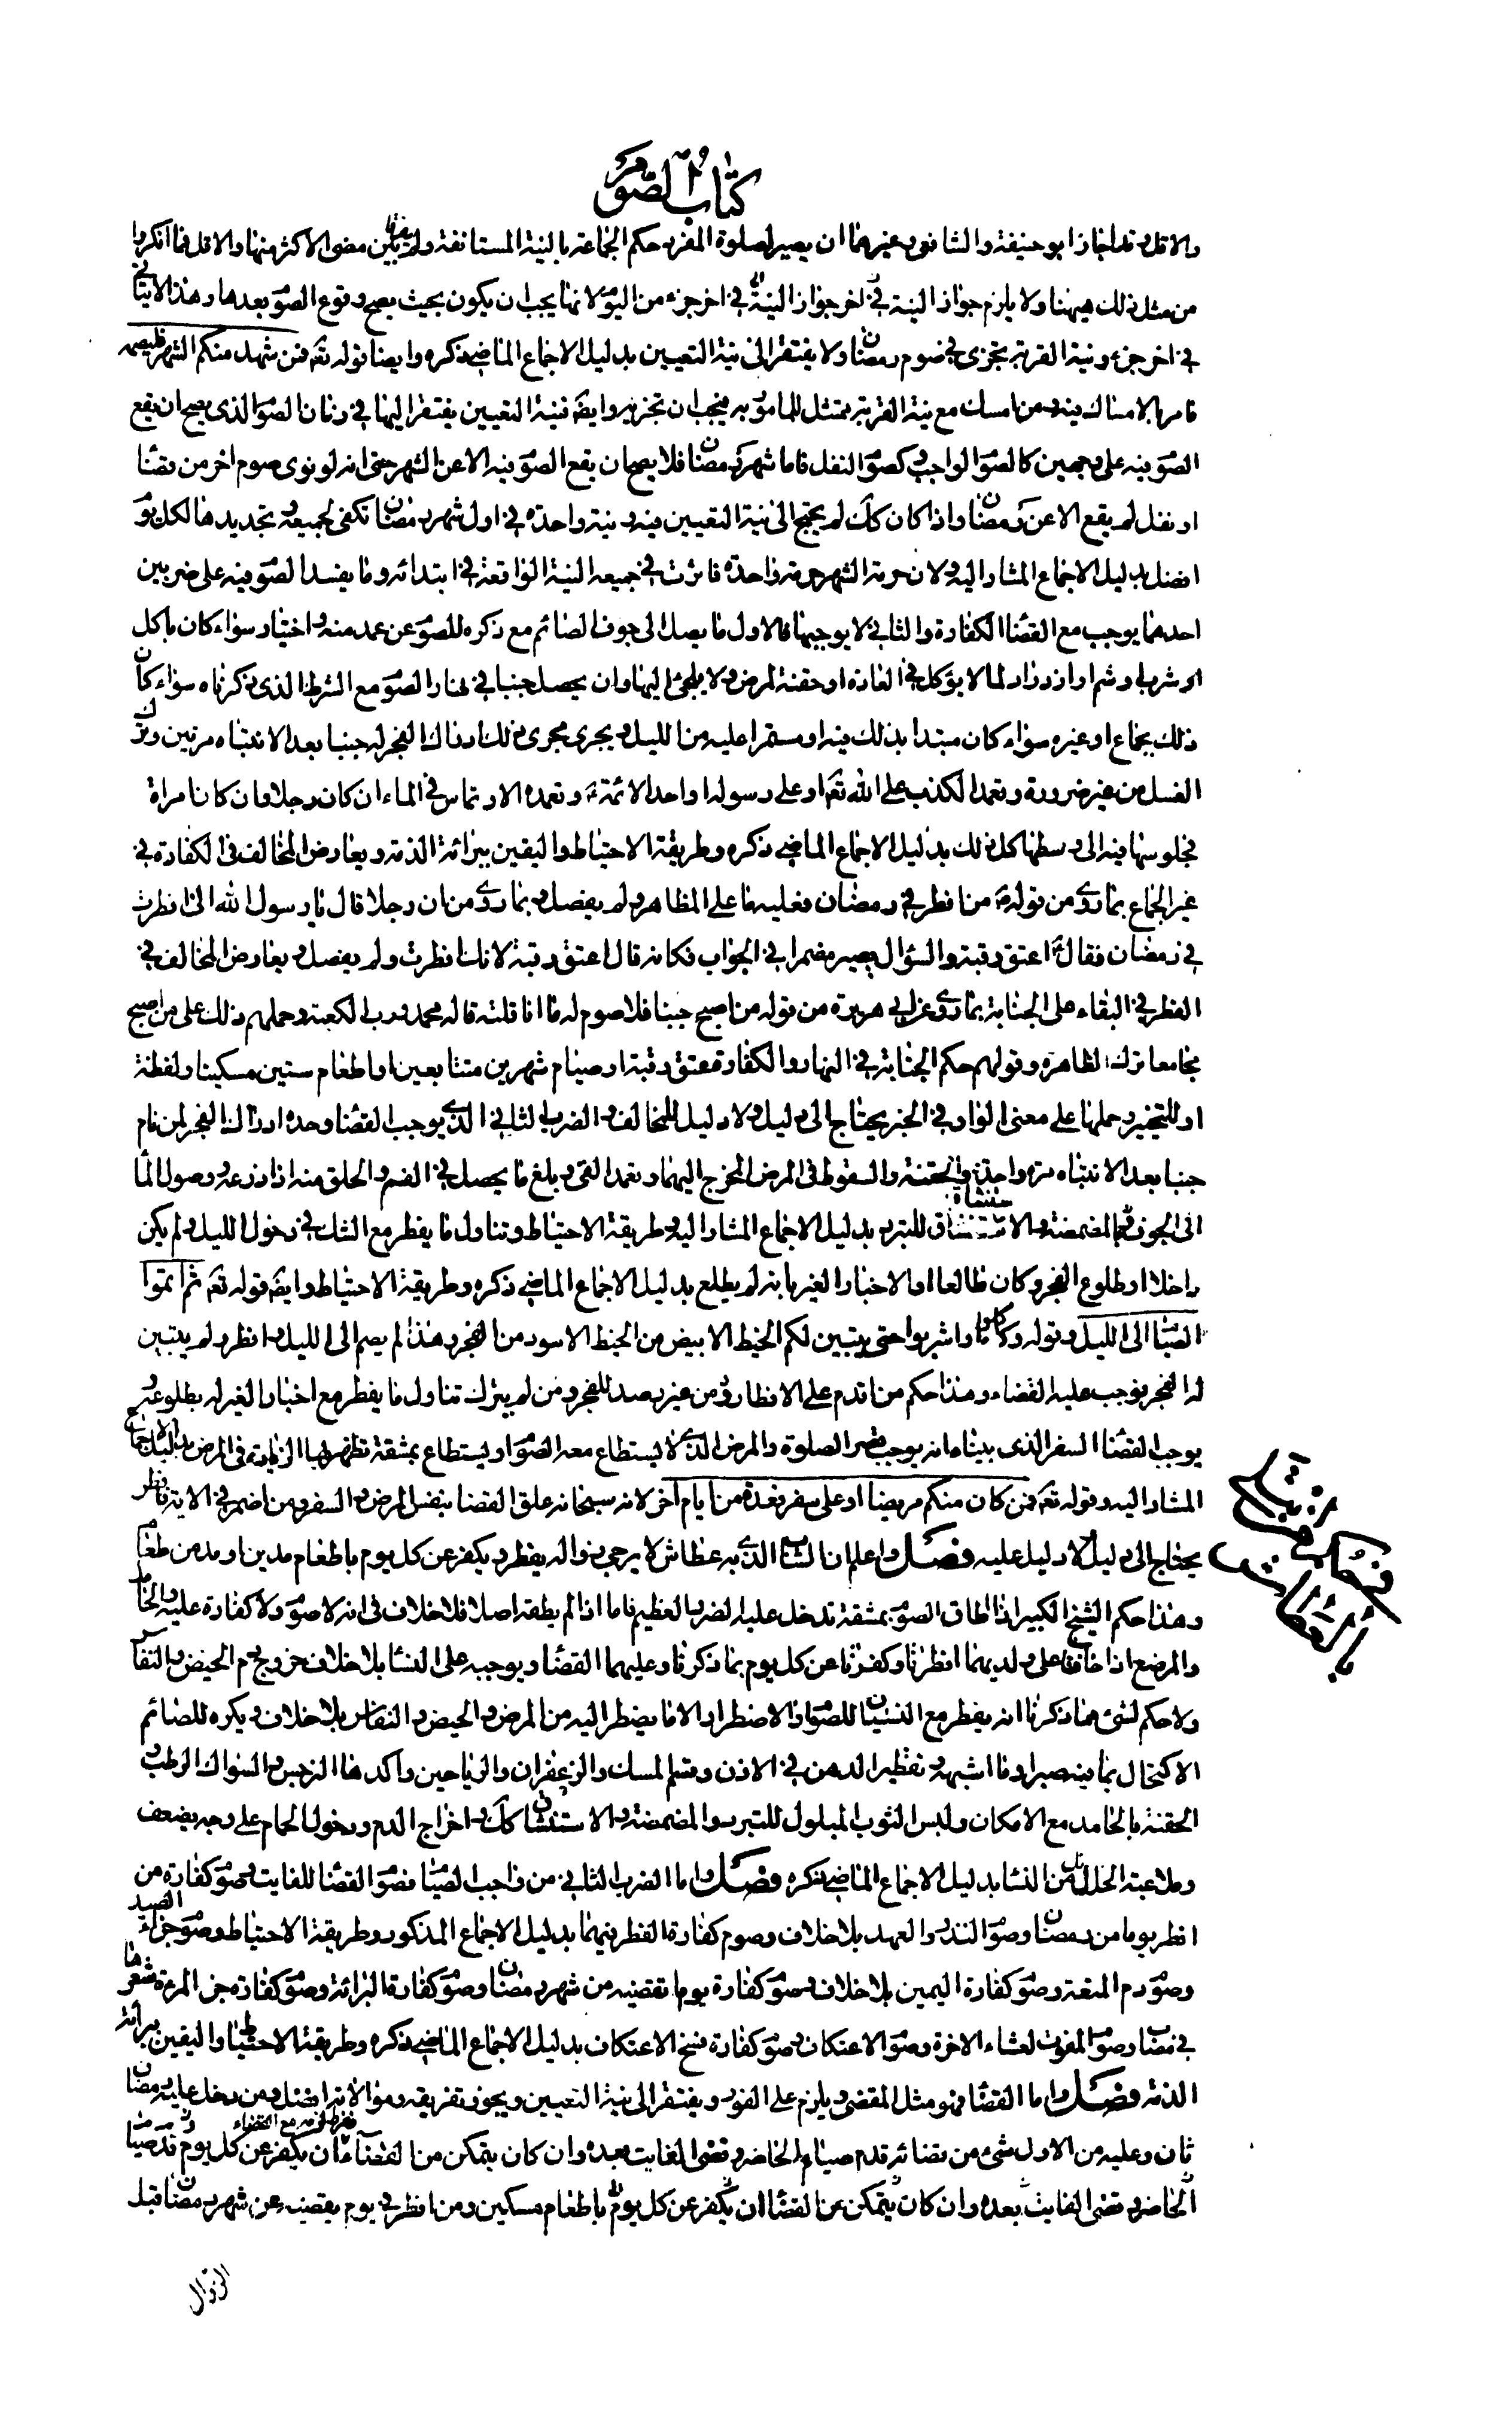 كتاب الصوم
والاقل وقد اجاز ابو حنيفة والشافعي وغيرهما ان يصير لصلوة المفرد حكم الجماعة بالنية المستأنفة ولم يفرقا بين مضى الاكثر منها والاقل فما انكروا
من مثل ذلك هيهنا ولا يلزم جواز النية في اخر جواز النية في اخر جزء من اليوم لانها يجب ان يكون بحيث يصح وقوع الصوم بعدها وهذا لا يتأتى
في اخر جزء ونية القربة تجزى في صوم رمضان ولا يفتقر الى نية التعيين بدليل الاجماع الماضى ذكره وايضا قوله تع فمن شهد منكم الشهر فليصمه
فامر بالامساك فيه ومن امسك مع نية القربة ممتثل للمأمور به فيجب ان تجزيه وايضا فنية التعيين يفتقر اليها في زمان الصوم الذى يصح ان يقع
الصوم فيه على وجهين كالصوم الواجب وكصوم النفل فاما شهر رمضان فلا يصح ان يقع الصوم فيه الا عن الشهر حتى انه لو نوى صوم اخر من قضاء
او نفل لم يقع الا عن رمضان واذا كان كك لم يحتج الى نية التعيين فيه ونية واحدة في اول شهر رمضان تكفى لجميعه وتجديدها لكل يوم
افضل بدليل الاجماع المشار اليه ولان حرمة الشهر حرمة واحدة فاثرت في جميعه النية الواقعة في ابتدائه وما يفسد الصوم فيه على ضربين
احدهما يوجب مع القضاء الكفارة والثاني لا يوجبها فالاول ما يصل الى جوف الصائم مع ذكره للصوم عن عمد منه واختيار سواء كان باكل
او شرب او شم او ازدراد لما لا يؤكل في العادة او حقنة لمرض لا يلجئ اليها وان يحصل جنبا في نهار الصوم مع الشرط الذى ذكرناه سواء كان
ذلك بجماع او غيره سواء كان مبتدا بذلك فيه او مستمرا عليه من الليل ويجرى مجرى ذلك ادراك الفجر له جنبا بعد الانتباه مرتين وترك
الغسل من غير ضرورة وتعمد الكذب على الله تع او على رسوله او احد الائمة ع وتعمد الارتماس في الماء ان كان رجلا وان كان امراة
فجلوسها فيه الى وسطها كل ذلك بدليل الاجماع الماضى ذكره وطريقة الاحتياط واليقين ببرائة الذمة ويعارض المخالف في الكفارة في
غير الجماع بما روى من قوله ع من افطر في رمضان فعليه ما على المظاهر ولم يفصل وبما روى من ان رجلا قال يا رسول الله انى افطرت
في رمضان فقال ع اعتق رقبة والسؤال يصير مضمرا في الجواب فكانه قال اعتق رقبة لانك افطرت ولم يفصل ويعارض المخالف في
الفطر في البقاء على الجنابة بما روى عن ابي هريرة من قوله من اصبح جنبا فلا صوم له ما انا قلته قاله محمد ورب الكعبة وحملهم ذلك على من اصبح
مجامعا ترك الظاهره وقولهم حكم الجنابة في النهار والكفارة عتق رقبة او صيام شهرين متتابعين او اطعام ستين مسكينا ولفظة
او للتخيير وحملها على معنى الواو في الخبر يحتاج الى دليل ولا دليل للمخالف والضرب الثاني الذى يوجب القضاء وحده ادراك الفجر لمن نام
جنبا بعد الانتباه مرة واحدة والحقنة والسعوط في المرض المحوج اليهما وتعمد القئ وبلغ ما يحصل في الفم والحلق منه اذا ذرعه ووصول الماء
الى الجوف في المضمضة والاستنشاق للتبرد بدليل الاجماع المشار اليه وطريقة الاحتياط وتناول ما يفطر مع الشك في دخول الليل ولم يكن
داخلا او طلوع الفجر وكان طالعا او الاخبار الغير بانه لم يطلع بدليل الاجماع الماضى ذكره وطريقة الاحتياط وايضا قوله تع ثم اتموا
الصيام الى الليل وقوله وكلوا واشربوا حتى يتبين لكم الخيط الابيض من الخيط الاسود من الفجر وهذا لم يصم الى الليل وافطر ولم يتبين
له الفجر فوجب عليه القضاء وهذا حكم من اقدم على الافطار من غير رصد للفجر ومن لم يترك تناول ما يفطر مع اخبار الغير له بطلوعه و
يوجب القضاء السفر الذى بيناه انه يوجب قصر الصلوة والمرض الذى لا يستطاع معه الصوم او يستطاع بمشقة تظهر بها الزيادة في المرض بدليل الاجماع
المشار اليه وقوله تع فمن كان منكم مريضا او على سفر فعدة من ايام اخر لانه سبحانه علق القضاء بنفس المرض والسفر ومن اضمر في الاية فافطر
يحتاج الى دليل لا دليل عليه فصل واعلم ان الشاب الذى به عطاش لا يرجى زواله يفطر ويكفر عن كل يوم باطعام مدين او مد من طعام
وهذا حكم الشيخ الكبير اذا اطاق الصوم بمشقة تدخل عليه الضرر العظيم فاما اذا لم يطقه اصلا فلا خلاف في انه لا صوم ولا كفارة عليه والحامل
والمرضع اذا خافتا على ولديهما افطرتا وكفرتا عن كل يوم بما ذكرنا وعليهما القضاء ويوجبه على النساء بلا خلاف خروج دم الحيض والنفاس
ولا حكم لشئ مما ذكرنا انه يفطر مع النسيان للصوم او الاضطرار الا ما يضطر اليه من المرض والحيض والنفاس بلا خلاف ويكره للصائم
الاكتحال بما فيه صبر او ما اشبهه وتقطير الدهن في الاذن وشم المسك والزعفران والرياحين وآكدها النرجس والسواك الرطب و
الحقنة بالجامد مع الامكان ولبس الثوب المبلول للتبرد والمضمضة والاستنشاق كك واخراج الدم ودخول الحمام على وجه يضعف
وملاعبة الحلائل من النساء بدليل الاجماع الماضى ذكره فصل واما الضرب الثاني من واجب الصيام فصوم القضاء للفايت وصوم كفارة من
افطر يوما من رمضان وصوم النذر والعهد بلا خلاف وصوم كفارة الفطر فيهما بدليل الاجماع المذكور وطريقة الاحتياط وصوم جزاء الصيد
وصوم دم المتعة وصوم كفارة اليمين بلا خلاف وصوم كفارة يوم تقضيه من شهر رمضان وصوم كفارة البرائة وصوم كفارة جز المرءة شعرها
في مصاب وصوم المفوت لعشاء الاخرة وصوم الاعتكاف وصوم كفارة فسخ الاعتكاف بدليل الاجماع الماضى ذكره وطريقة الاحتياط واليقين ببرائة
الذمة فصل واما القضاء فهو مثل المقضى ويلزم على الفور ويفتقر الى نية التعيين ويجوز تفريقه وموالاته افضل ومن دخل عليه رمضان
ثان وعليه من الاول شئ من قضائه قدم صيام الحاضر وقضى الفايت بعده وان كان يتمكن من القضاء ان يكفر عن كل يوم
الحاضر وقضى الفايت بعده وان كان يتمكن من القضاء ان يكفر عن كل يوم باطعام مسكين ومن افطر في يوم يقضيه عن شهر رمضان قبل
الزوال